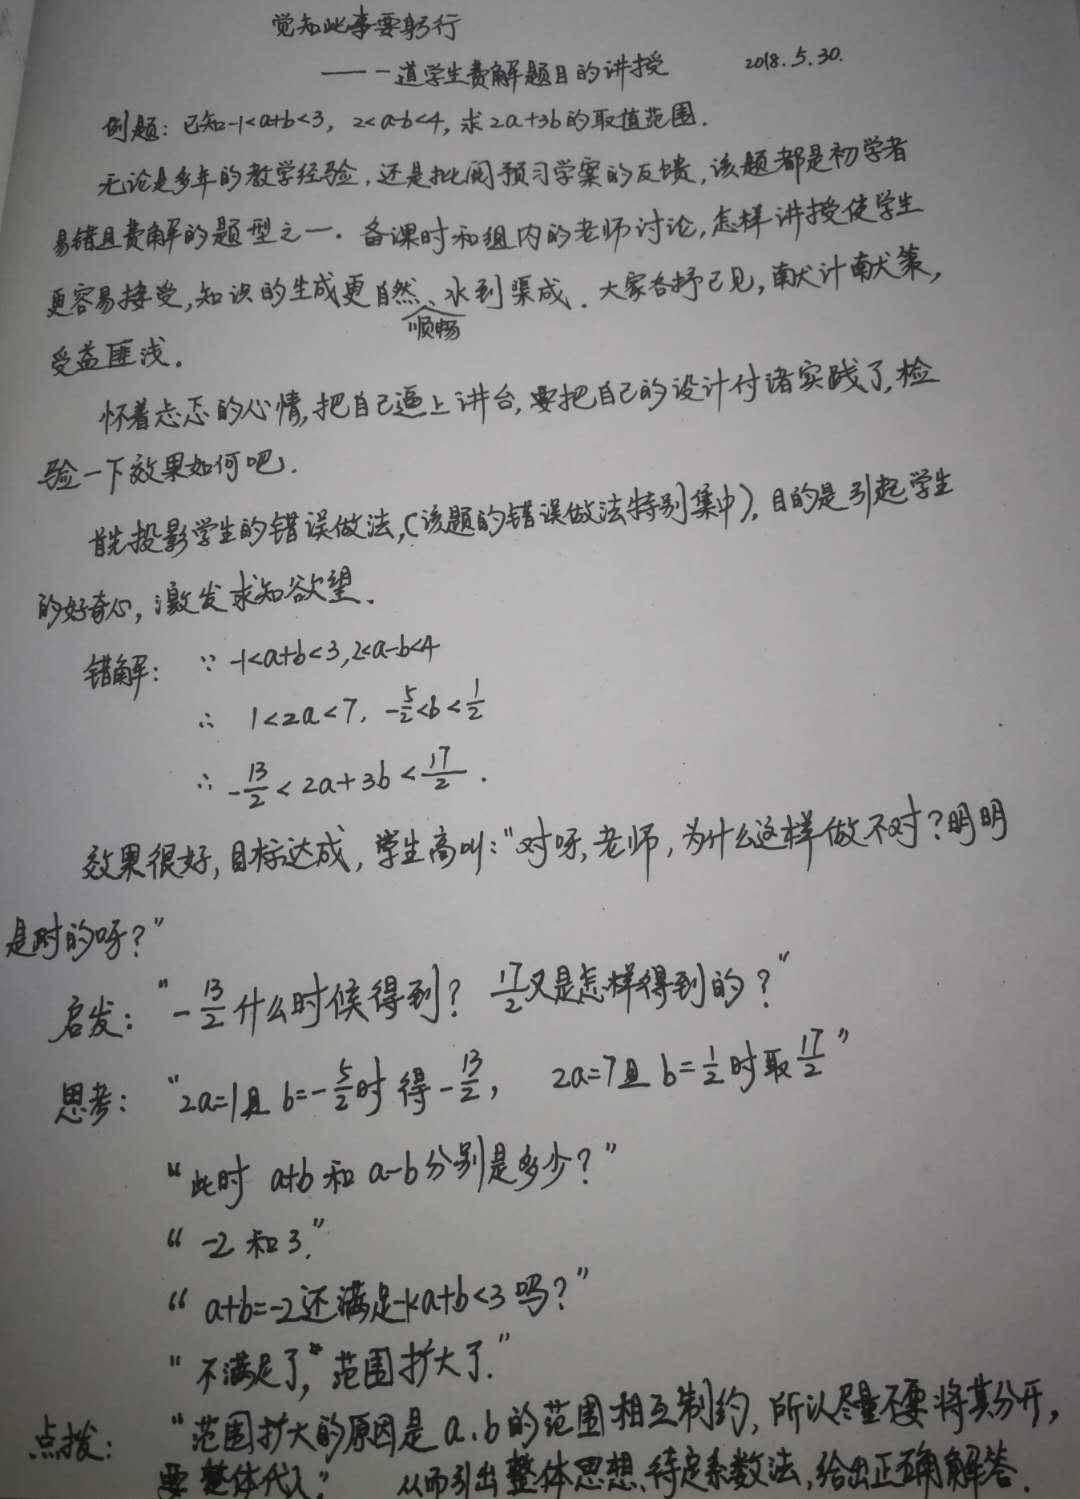 觉知此事要躬行
——一道学生费解题目的讲授 2018.5.30.
例题：已知-1<a+b<3，2<a-b<4，求2a+3b的取值范围．
无论是多年的教学经验，还是批阅预习学案的反馈，该题都是初学者
易错且费解的题型之一．备课时和组内的老师讨论，怎样讲授使学生
更容易接受，知识的生成更自然、水到渠成．大家各抒己见，献计献策，
顺畅
受益匪浅．
怀着忐忑的心情，把自己逼上讲台，要把自己的设计付诸实践了，检
验一下效果如何吧．
首先投影学生的错误做法，（该题的错误做法特别集中），目的是引起学生
的好奇心，激发求知欲望．
错解：∵ -1<a+b<3，2<a-b<4
∴ 1<2a<7，-5/2<b<1/2
∴ -13/2<2a+3b<17/2．
效果很好，目标达成，学生高叫：“对呀，老师，为什么这样做不对？明明
是对的呀？”
启发：“-13/2什么时候得到？17/2又是怎样得到的？”
思考：“2a=1且b=-5/2时得-13/2，2a=7且b=1/2时取17/2”
“此时a+b和a-b分别是多少？”
“-2和3.”
“a+b=-2还满足-1<a+b<3吗？”
“不满足了，范围扩大了.”
点拨：“范围扩大的原因是a、b的范围相互制约，所以尽量不要将其分开，
要整体代入”　从而引出整体思想、待定系数法，给出正确解答．